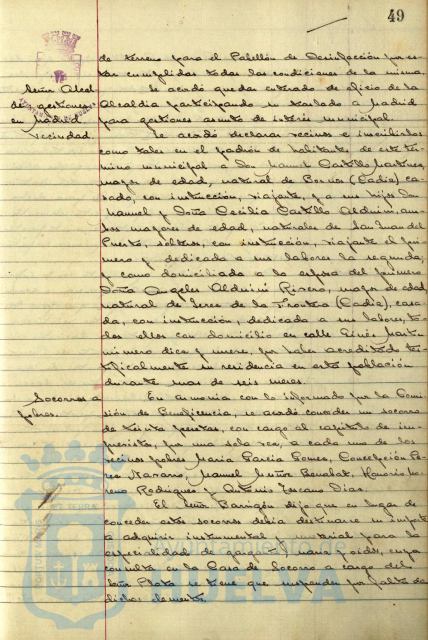 49
de terreno para el Pabellón de Desinfección por es-
tar cumplidas todas las condiciones de la misma.
Señor Alcal-
de gestiones
en Madrid
Se acordó quedar enterado de oficio de la
Alcaldia participando su traslado a Madrid
para gestionar asuntos de interés municipal.
Vecindad.
Se acordó declarar vecinos e inscribirlos
como tales en el padrón de habitantes, de este tér-
mino municipal a Don Manuel Castillo Martinez,
mayor de edad, natural de Bornos (Cadiz) ca-
sado, con instrucción, viajante, y a sus hijos Don
Manuel y Doña Cecilia Castillo Alduini, am-
bos mayores de edad, naturales de San Juan del
Puerto, solteros, con instrucción, viajante el pri-
mero y dedicada a sus labores la segunda;
y como domiciliada a la esposa del primero
Doña Angeles Alduini Rivero, mayor de edad,
natural de Jerez de la Frontera (Cadiz), casa-
da, con instrucción, dedicada a sus labores, to-
dos ellos con domicilio en calle Ginés Martin
número doce y nueve, por haber acreditado tes-
tificalmente su residencia en esta población
durante mas de seis meses.
Socorros a
pobres.
En armonia con lo informado por la Comi-
sión de Beneficencia, se acordó conceder un socorro
de treinta pesetas, con cargo al capitulo de im-
previstos, por una sola vez, a cada uno de los
vecinos pobres Maria Garcia Gomez, Concepción Pe-
rez Navarro, Manuel Muñoz Benabat, Honorio Mo-
reno Rodriguez y Antonio Toscano Diaz.
El Señor Barrigón dijo que en lugar de
conceder estos socorros debia destinarse su importe
a adquirir instrumental y material para la
especialidad de garganta, nariz y oidos, cuya
consulta en la Casa de Socorro a cargo del
Señor Plata se tiene que suspender por falta de
dichos elementos.
HUELVA